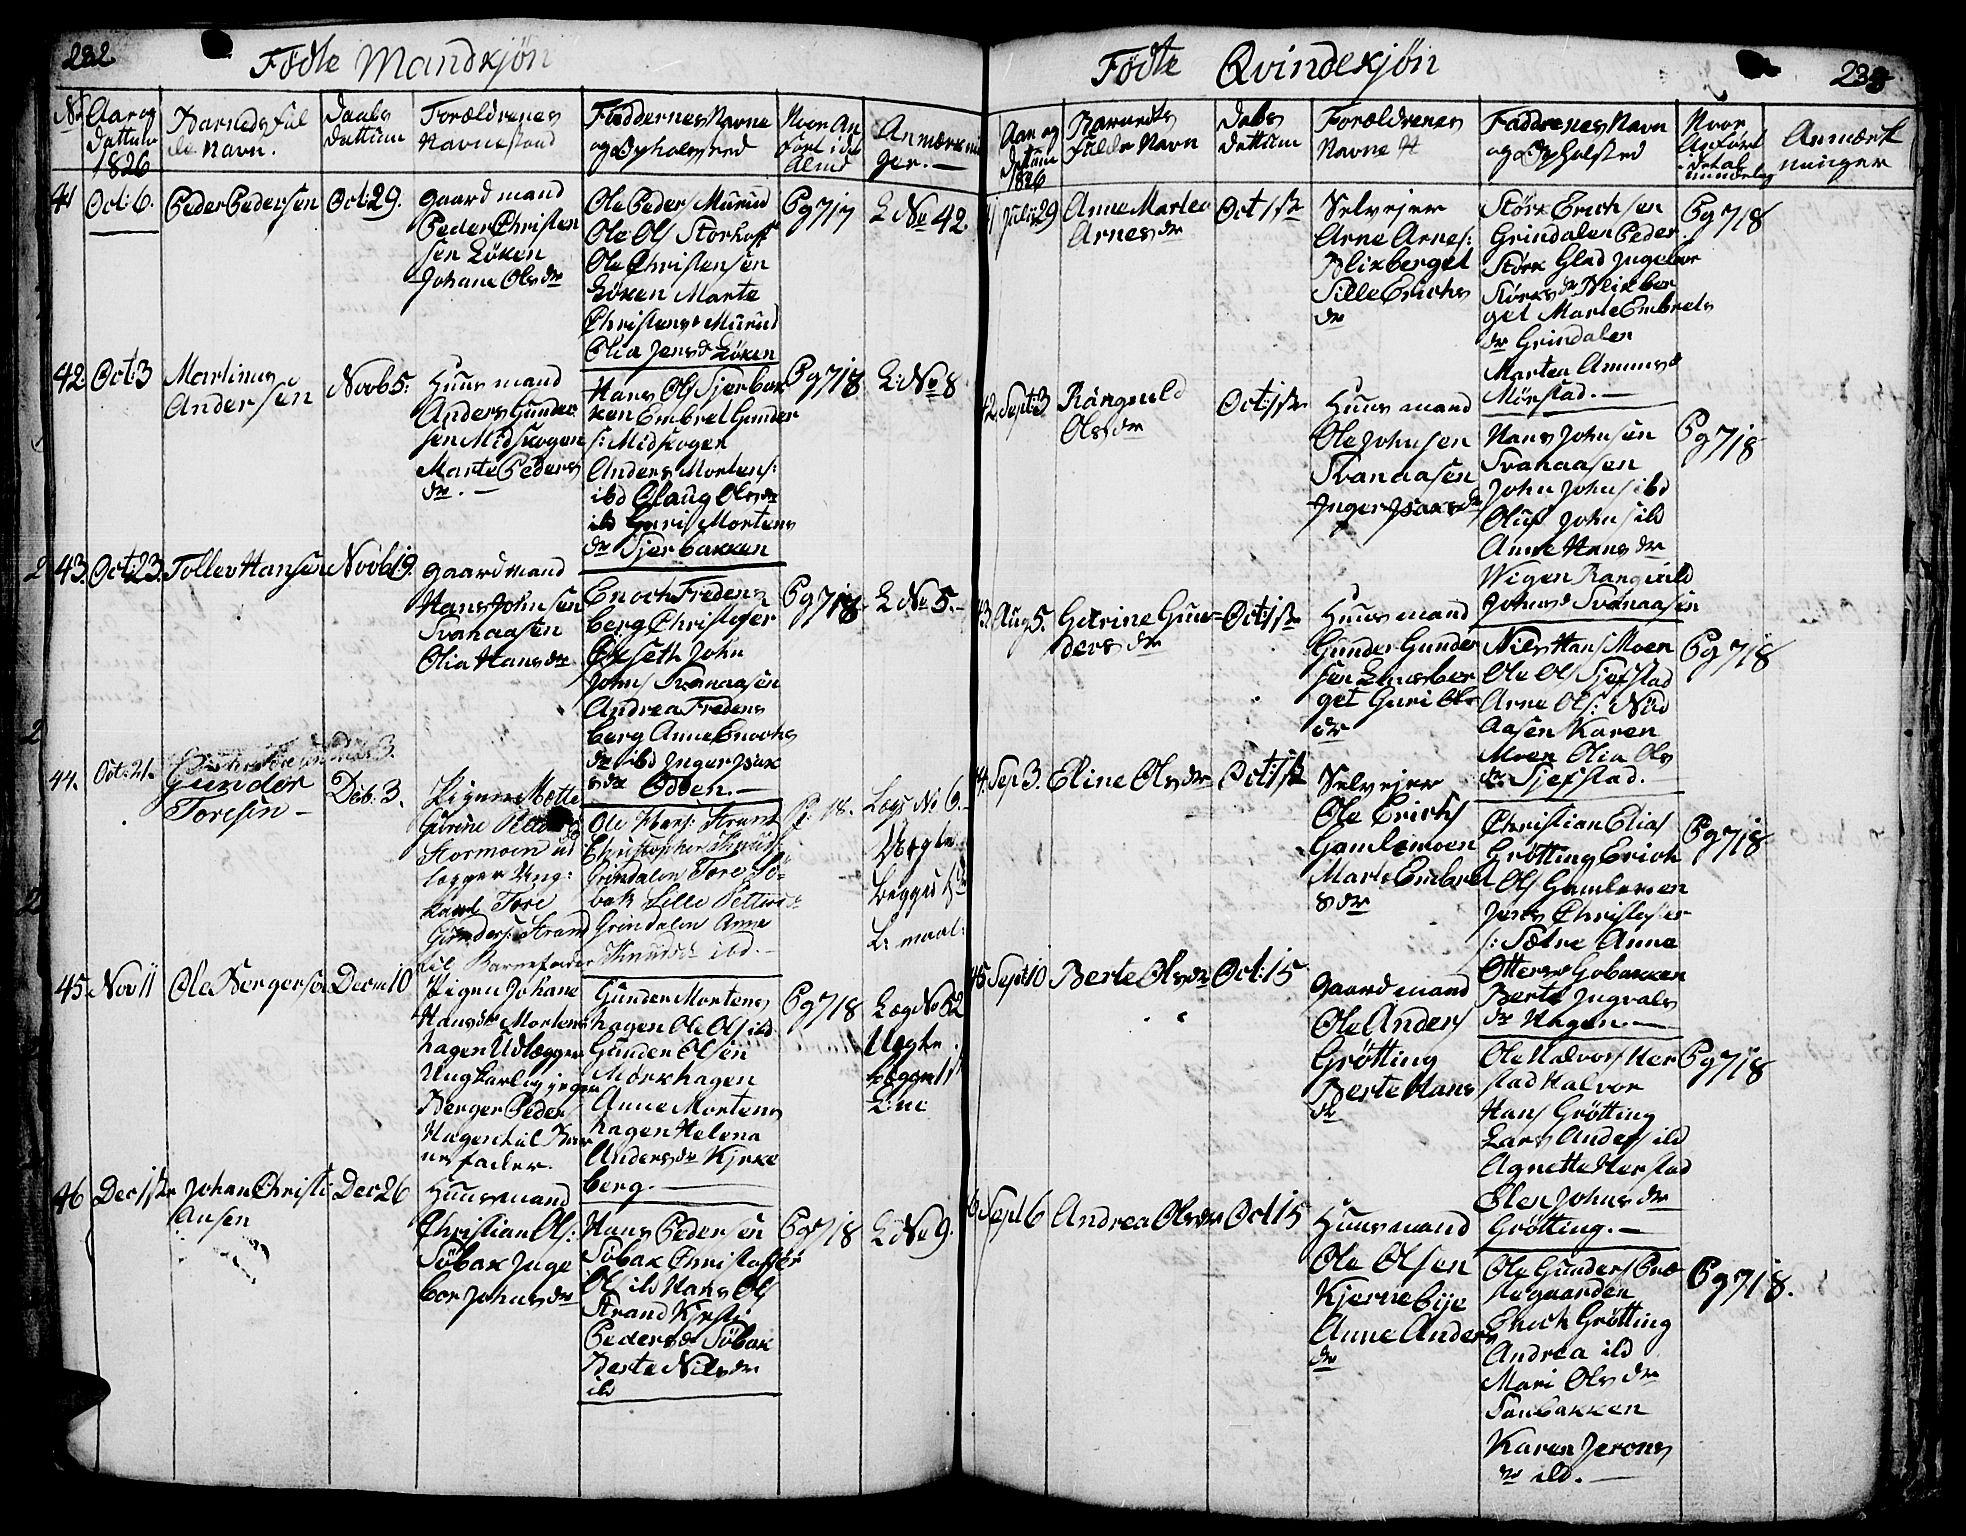 232
Födte Mandkjön
No
Aar og
Dattum
1826
Barnets ful
de Navn.
Daabs
Dattum
Forældrenes
Navne stand
Faddernes Navne
og Opholdssted
Hvor An
ført i det
Almd
Anmærknin
ger.
41
Oct: 6.
Peder Pedersen
Oct: 29.
Gaardmand
Peder Christen
sen Löken
Johane Olsdr
Ole Peders Murud
Ole Ols Storhoff
Ole Christensen
Löken Marte
Christensd Murud
Olia Jensd Löken
Pg 717
L No 42.
42
Oct: 3
Martinus
Andersen
Novb 5:
Huusmand
Anders Gunder
sen Midskogen
Marte Peders
dr. —
Hans Ols Sjerbak
ken Embret Gunder
s: Midskogen
Anders Mortens:
ibd Olaug Olsdr
ibd Guri Mortens
dr Sjerbakken
Pg 718
L: No 8
43.
Oct: 23.
Tollev Hansen
Novb 19.
Gaardmand
Hans Johnsen
Svanaasen
Olia Hansdr
Enoch Fredens
berg Christofer
Ölseth John
Johns Svanaasen
Andrea Fredens
berg Anne Enochs
dr ibd Inger Isak
sdr Odden. —
Pg 718.
L No 5. —
44.
Oct: 21.
Gunder
Toresen —
Deb: 3.
Pigen Mette
Gurine
Stormoen ud
lægger Ung:
karl Tore
Gunders: Strand
til Barnefader
Ole Hans: Strand
Christopher Knuds:
Grindalen Tore Sö-
bak Lille
Grindalen Anne
Knudsd ibd. —
18.
Lægs No 6. —
Uægte
begges 1ste
L: maal:
45
Nov 11
Ole Bergersen
Decm 10
Pigen Johane
Hansdr Mortens
hagen Udlægger
Ungkarl
Berger Peder
Hagen til Bar
nefader.
Gunder Mortens
hagen Ole Ols ibd
Gunder Olsen
Mörkhagen
Anne Mortens
hagen Helena
Andersdr Kjrke
berg. —
Pg 718
Læg No 52
Uægte.
begges 1st
46
Dec 1ste
Johan Christi
ansen
Dec 26
Huusmand
Christian Ols:
Söbak Inge
bor Johnsdr
Hans Pedersen
Söbak Christoffer
Ols ibd Hans Ols
Strand Kjrsti
Pedersdr Söbak
Berte Nilsdr
ibd
Pg 718
L No 9.
233
Födte Qvindekjön
Aar og
Dattum
1826
Barnets
fulde Navn
Dabs
Dattum
Forældrenes
Navne
Faddrenes Navn
og Opholsted
Hvor
Anført
i det al
mindelig
Anmærk
ninger
Julii 29
Anne Martea
Arnesdr
Oct 1ste
Selvejer
Arne Arnes:
Blixberget
Sille Erichs
dr
Störk Erichsen
Grindalen Peder
Störk Glad Ingebor
Störksdr Blixber
get Marte Embrets
dr Grindalen
Martea Amunsd
Mörstad. —
Pg 718
42
Sept: 3
Rangnild
Olsdr
Oct: 1ste
Huusmand
Ole Johnsen
Svanaasen
Inger Isaksdr
Hans Johnsen
Svanaasen
John Johns ibd
Oluf Johns ibd
Anne Hansdr
Wigen Rangnild
Johnsd Svanaasen
Pg 718
43
Aug 5.
Gurine Gun-
dersdr
Oct: 1ste
Huusmand
Gunder Gunder
sen
get Guri Ols
dr
Nils Hans Moen
Ole Ols Sjefstad
Arne Ols: Nöd
Aasen Karen
Moen Olia Ols
dr Sjefstad.
Pg 718
4.
Sep 3.
Eline Olsdr
Oct: 1ste
Selvejer
Ole Erichs
Gamlemoen
Marte Embret
sdr
Christian Elias
Grötting Erich
Ols Gamlemoen
Jens Christofer
s: Sætre Anne
Ottersd Gobakken
Berte Ingvals
dr Hagen. —
Pg 718
45
Sept 10
Berte Olsdr
Oct: 15
Gaardmand
Ole Anders
Grötting
Berte Hans
dr
Ole Halvors Her
stad Halvor
Hans Grötting
Lars Anders ibd
Agnette Herstad
Elen Johnsdr
Grötting. —
Pg 718
6
Sept 6
Andrea Olsdr
Oct 15
Huusmand
Ole Olsen
Kjernebye
Anne Anders
dr
Ole Gunders Præ
stegaarden
Erich Grötting
Andrea ibd
Mari Olsdr
Sanbakken
Karen Jerons
dr ibd. —
Pg 718.